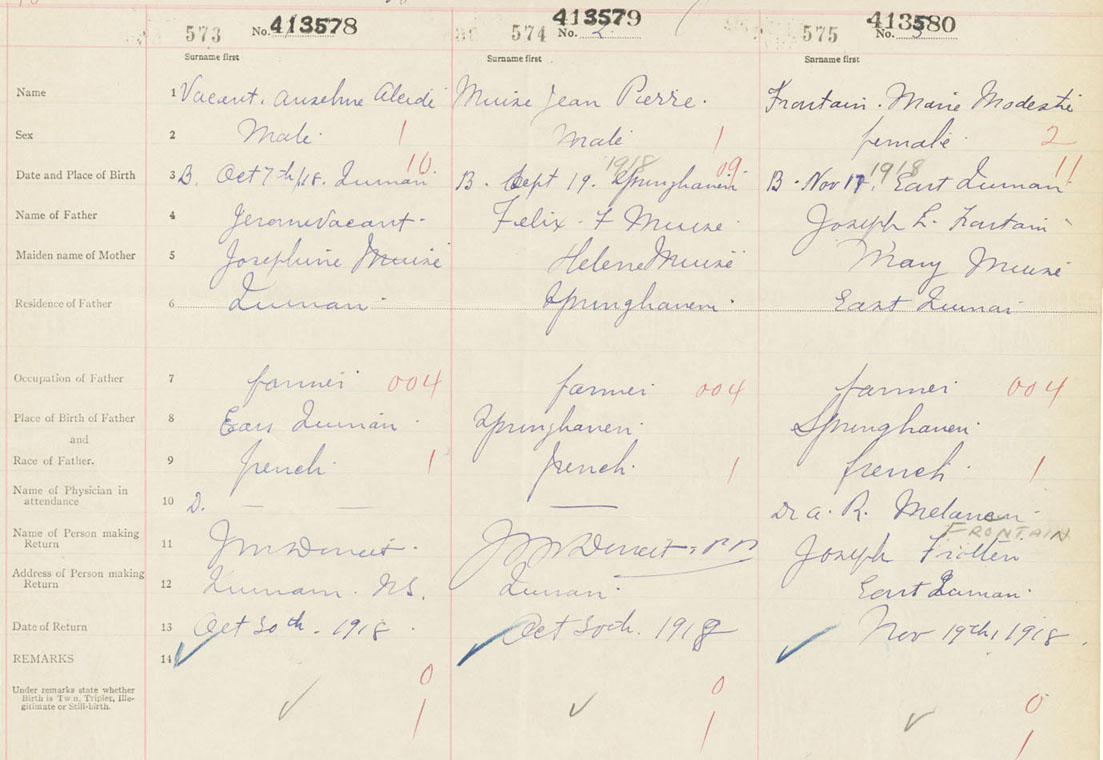 573 No. 413578 574 No. 2 413579 575 No. 3 413580
Surname first Surname first Surname first
Name 1 Vacant. Anselme Alcide Muise Jean Pierre. Frontain. Marie Modeste
Sex 2 Male. 1 Male 1 female. 2
10 1918 09 1918 11
Date and Place of Birth 3 B. Oct 7th/18. Quinan B. Sept 19. Springhaven B. Nov 17. East Quinan
Name of Father 4 Jerome Vacant. Felix. F Muise Joseph L. Frontain
Maiden name of Mother 5 Josephine Muise Helene Muise Mary Muise
Residence of Father 6 Quinan. Springhaven. East Quinan
Occupation of Father 7 farmer 004 farmer 004 farmer 004
Place of Birth of Father 8 East Quinan. Springhaven. Springhaven.
and
Race of Father. 9 french. 1 french. 1 french. 1
Name of Physician in
attendance 10 D. — — — Dr A. R. Melanson
FRONTAIN
Name of Person making
Return 11 Joseph
Address of Person making
Return 12 Quinan. NS. Quinan. East Quinan.
Date of Return 13 Oct 30th. 1918. Oct 30th. 1918 Nov 19th, 1918.
REMARKS 14
0 0 0
Under remarks state whether
Birth is Twin, Triplet, Ille-
gitimate or Still-birth.
1 1 1